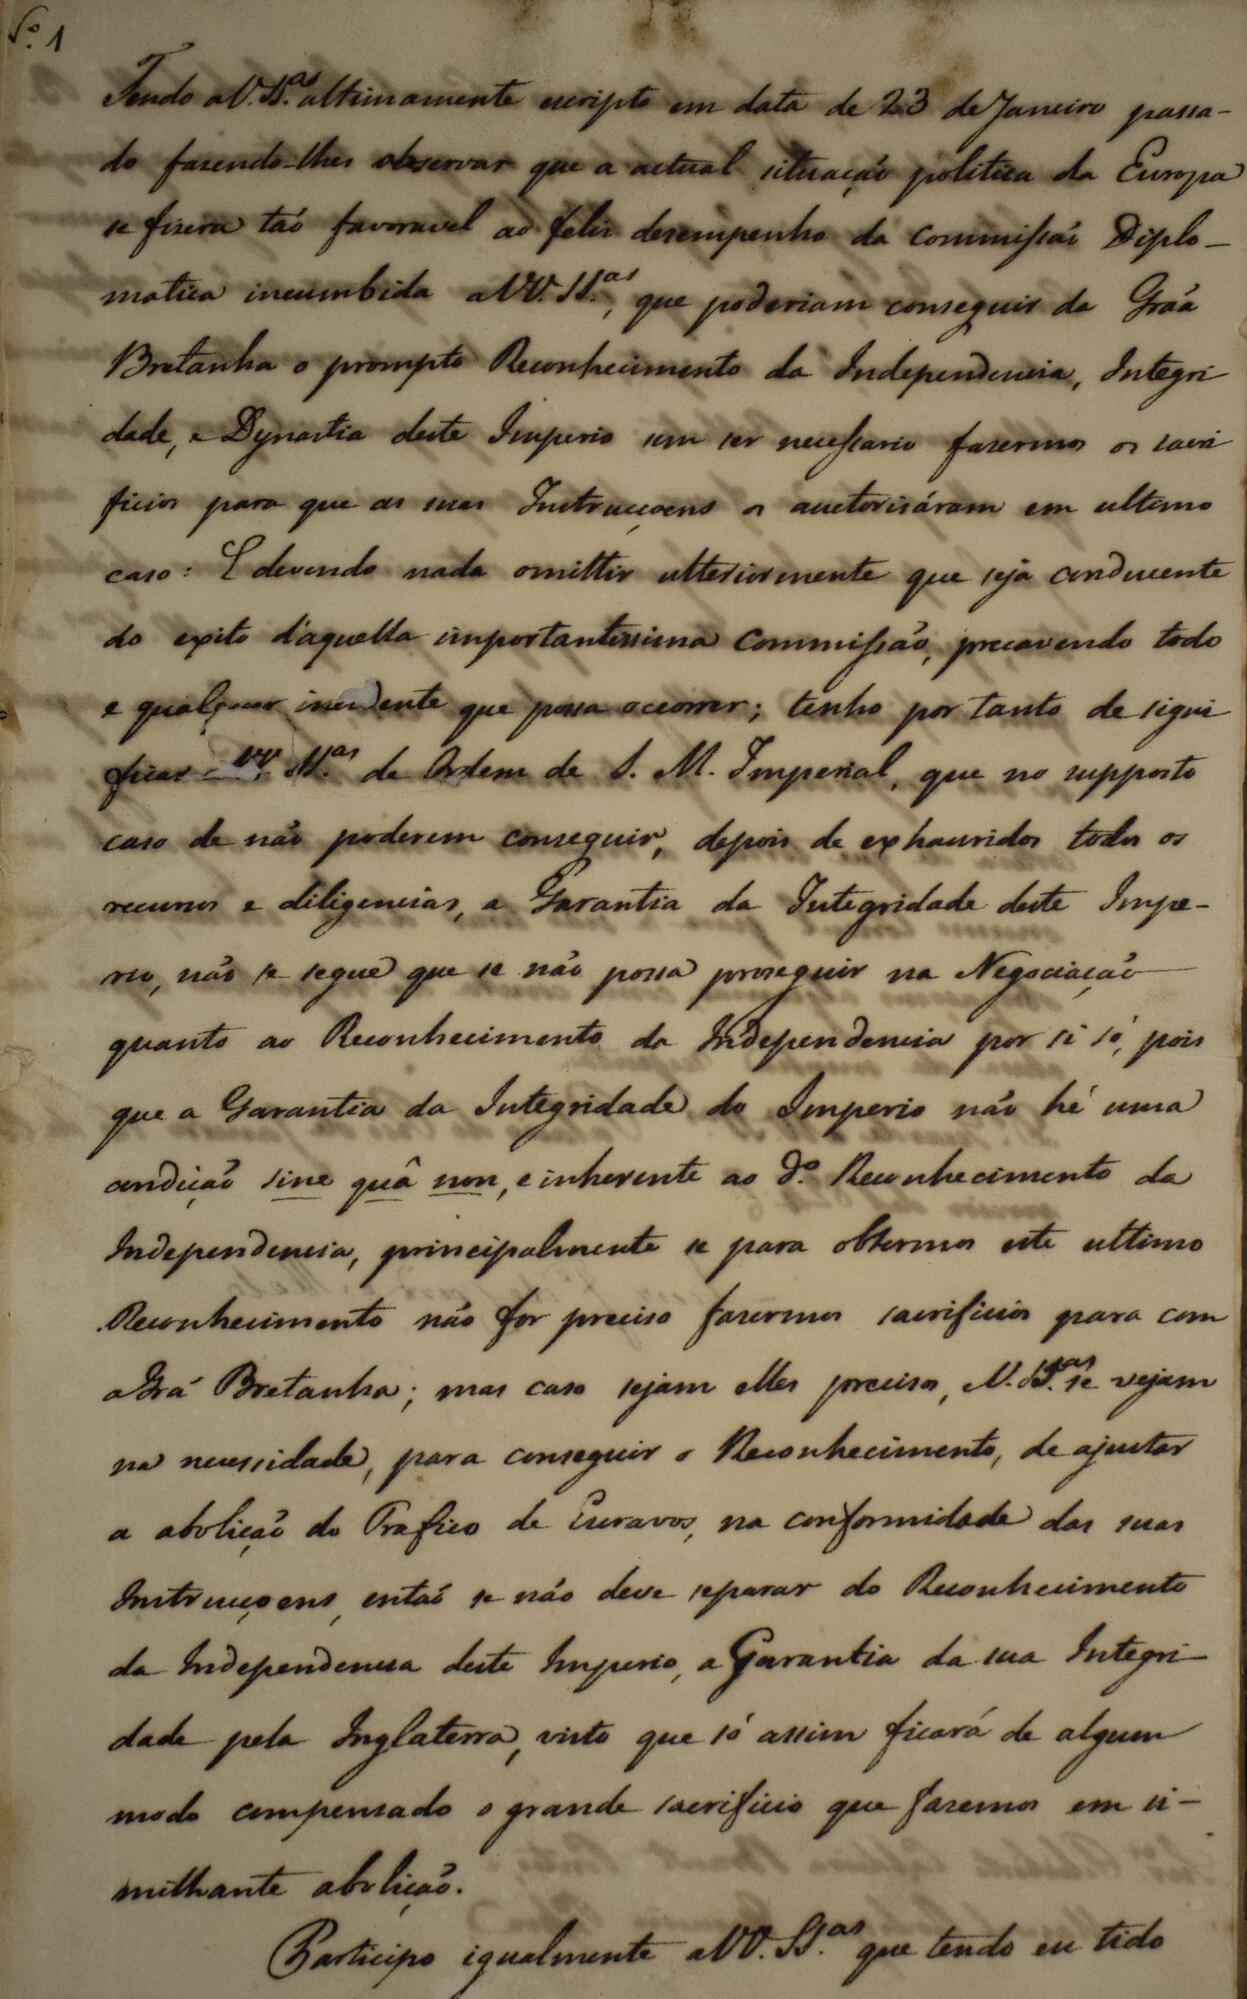 Nº. 1
Tendo a V. Sªs. ultimamente escripto em data de 23 de Janeiro passa-
do fasendo-lhes observar que a actual situação politica da Europa
se fisera taõ favoravel ao felis desempenho da Commissaõ Diplo-
matica incumbida a VV. SS.as, que poderiam conseguir da Graã
Bretanha o prompto Reconhecimento da Independencia, Integri
dade, e Dynastia deste Imperio sem ser necessario fazermos os sacri
ficios para que as suas Instrucçoens os auctorisáram em ultimo
caso: E devendo nada omittir ulteriormente que seja conducente
do exito d'aquella importantissima Commissão, precavendo todo
e qualquer incidente que possa occorrer; tenho por tanto de signi
ficar a VV. SS.as de Ordem de S. M. Imperial, que no supposto
caso de não poderem conseguir, depois de exhauridos todos os
recursos e diligencias, a Garantia da Integridade deste Impe-
rio, não se segue que se não possa proseguir na Negociação
quanto ao Reconhecimento da Independencia por si só, pois
que a Garantia da Integridade do Imperio não hé uma
condição sine quâ non, e inherente ao dº. Reconhecimento da
Independencia, principalmente se para obtermos este ultimo
Reconhecimento não for preciso fazermos sacrificios para com
a Grã Bretanha; mas caso sejam elles precisos, e V. Sªs. se vejam
na necessidade, para conseguir o Reconhecimento, de ajustar
a abolição do Trafico de Escravos, na conformidade das suas
Instrucçoens, entaõ se não deve separar do Reconhecimento
da Independencia deste Imperio, a Garantia da sua Integri-
dade pela Inglaterra, visto que só assim ficará de algum
modo compensado o grande sacrificio que fazemos em si-
milhante abolição.
Participo igualmente a VV. SS.as que tendo eu tido